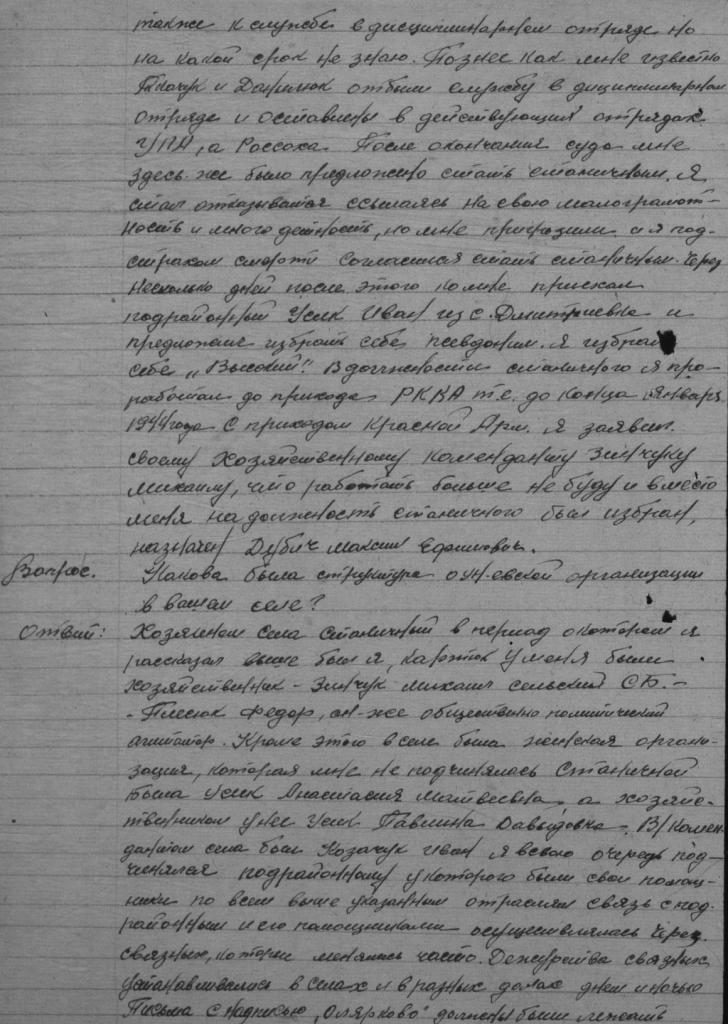 также к службе в дисциплинарном отряде но
на какой срок не знаю. Позднее как мне известно
Ткачук и Данилюк отбыли службу в дисциплинарном
отряде и оставлены в действующих отрядах
УПА, а Россоха. После окончания суда мне
здесь же было предложено стать станичным. Я
стал отказываться ссылаясь на свою малограмот-
ность и много детность, но мне пригрозили и я под
страхом смерти согласился стать станичным. Через
несколько дней после этого ко мне приехал
подрайонный Усик Иван из с. Дмитриевка и
предложил избрать себе псевдоним. Я избрал
себе „Высокий". В должности станичного я про-
работал до прихода РККА т.е. до конца января
1944 года С приходом Красной Арм. я заявил
своему хозяйственному коменданту Зинчуку
Михаилу, что работать больше не буду и вместо
меня на должность станичного был избран,
назначен Дубич Максим Ефимович.
Вопрос. Какова была структура оун-евской организации
в вашем селе?
Ответ: Хозяином села станичный в период о котором я
рассказал выше был я, у меня были
хозяйственник - Зинчук Михаил сельский СБ. -
- Плесюк Федор, он-же общественно политический
агитатор. Кроме этого в селе была женская органи-
зация, которая мне не подчинялась Станичной
была Усик Анастасия Матвеевна, а хозяйс-
твенником у нее Усик Павлина Давыдовна, В/Комен-
дантом села был Козачук Иван я в свою очередь под-
чинялся подрайонному у которого были свои помощ-
ники по всем выше указанным отраслям связь с под-
районным и его помощниками осуществлялась через
связных, которые менялись часто. Дежурства связных
устанавливались в селах и в разных домах днем и ночью
Письма с надписью должны были лежать